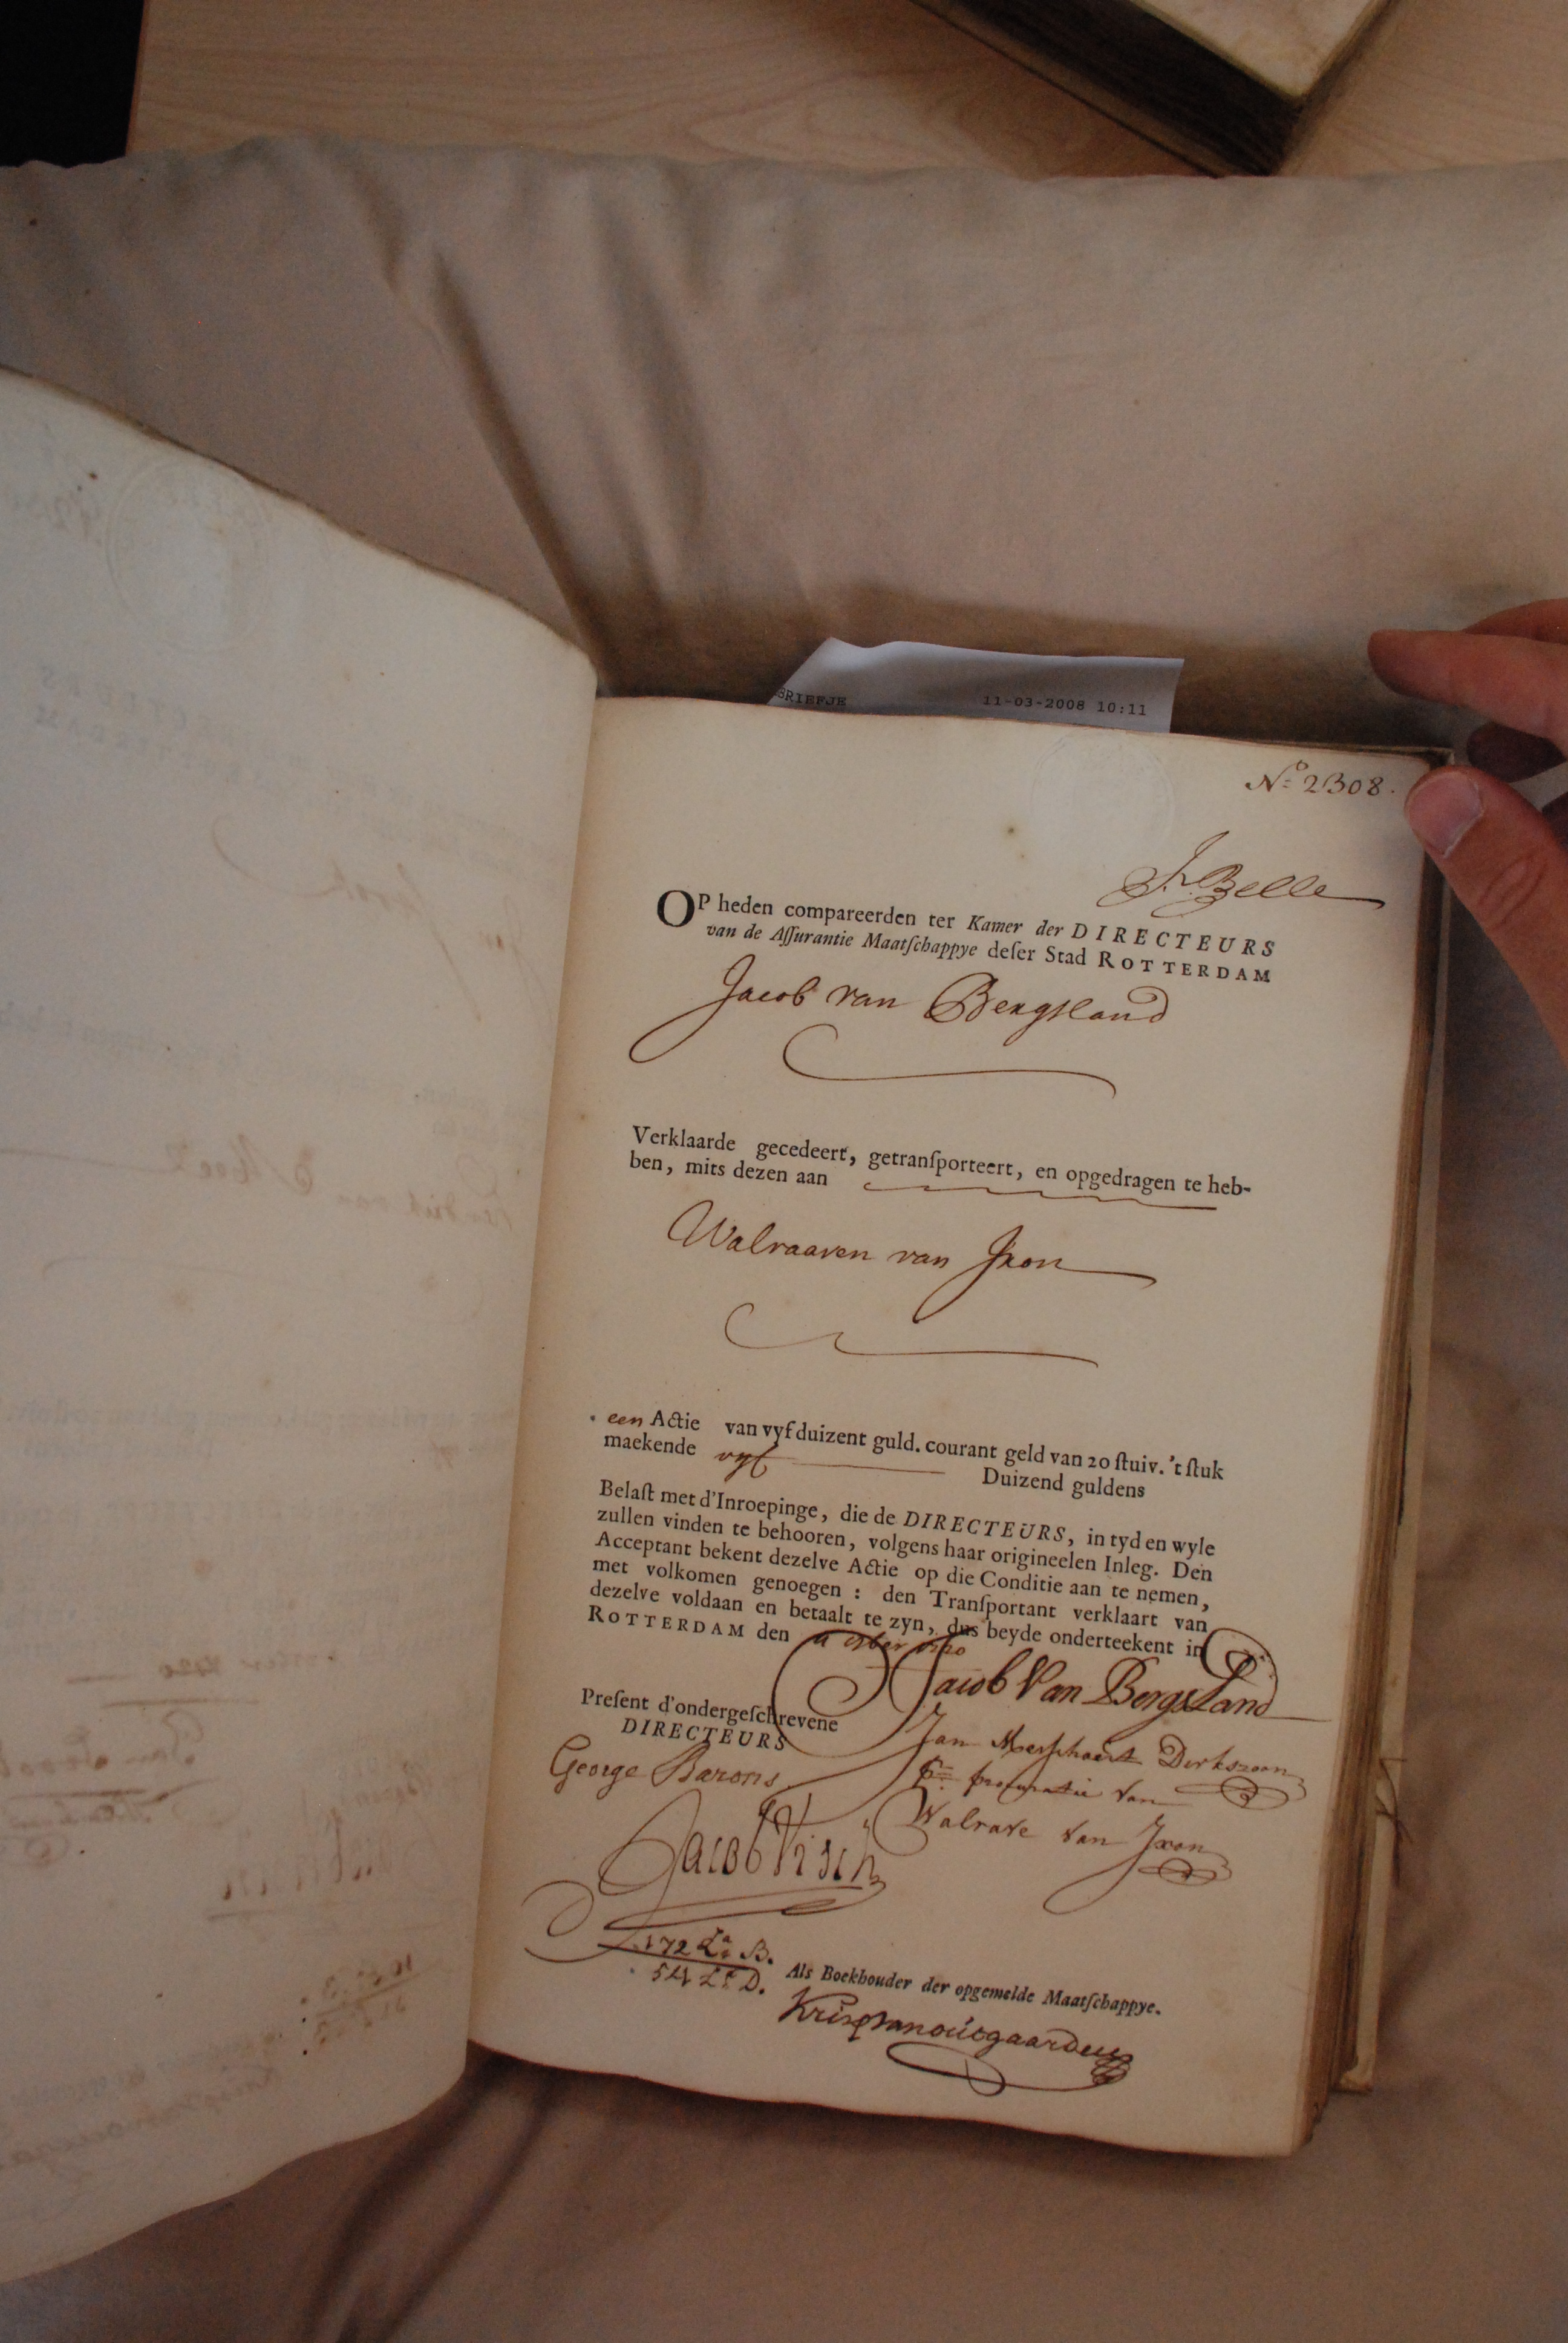 BRIEFJE 11-03-2008 10:11
No 2308.
J. Belle
OP heden compareerden ter Kamer der DIRECTEURS
van de Aſſurantie Maatſchappye deſer Stad ROTTERDAM
Jacob van Bergsland
Verklaarde gecedeert, getranſporteert, en opgedragen te heb-
ben, mits dezen aan
Walraaven van Ixon
een Actie van vyf duizent guld. courant geld van 20 ſtuiv. 't ſtuk
maekende vyf Duizend guldens
Belaſt met d'Inroepinge, die de DIRECTEURS, in tyd en wyle
zullen vinden te behooren, volgens haar origineelen Inleg. Den
Acceptant bekent dezelve Actie op die Conditie aan te nemen,
met volkomen genoegen : den Tranſportant verklaart van
dezelve voldaan en betaalt te zyn, dus beyde onderteekent in
ROTTERDAM den
Jacob Van BergsLand
Preſent d'ondergeſchrevene
DIRECTEURS
Jan Dirkszoon
George Barons
procuratie van
Walrave van Ixon
Jacob Visch
172 La B.
54 La D.
Als Boekhouder der opgemelde Maatſchappye.